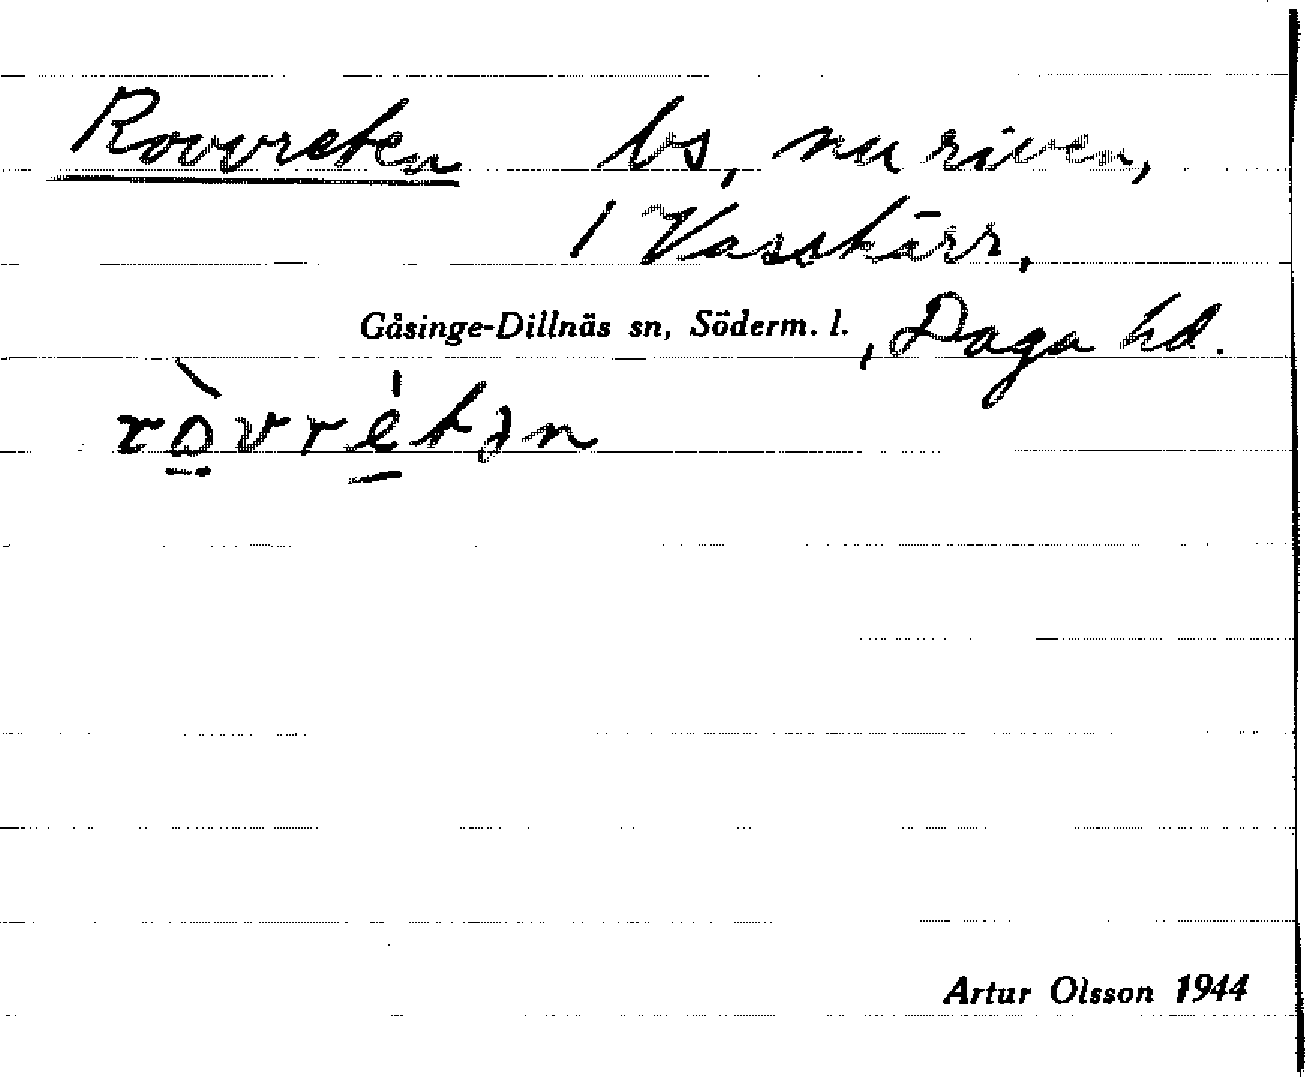 Rovvreten bs, nu riven,
/ Vasskärr,
Gåsinge-Dillnäs sn, Söderm. l., Daga hd.
rò̲vré̲tən
Artur Olsson 1944